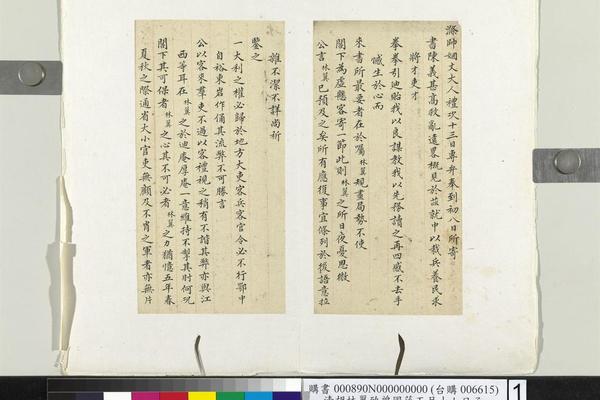 滌師姻丈大人禮次十三日專弁奉到初八日所寄
書陳義甚高敉亂遠畧概見於茲就中以裁兵養民求
將才吏才
拳拳引迪貽我以良謀教我以先務讀之再四感不去手
感生於心而
來書所最要者在於囑林翼規畫局勢不使
閣下為虛懸客寄一節此則林翼之所日夜憂思徹
公言林翼已預及之矣所有應復事宜條列於後語意拉
雜不潔不詳尚祈
鑒之
一大利之權必歸於地方大吏客兵客官令必不行鄂中
自裕東岩作俑其流弊不可勝言
公以客來羣吏不過以客禮視之稍有不諧其弊亦與江
西等耳在林翼之於迪庵厚庵一意維持不掣其肘何况
閣下其可保者林翼之心其不可必者林翼之力猶憶五年春
夏秋之際通省大小官吏無顧及不肖之軍者亦無片
購書 000890N000000000 (台購 006615)
1